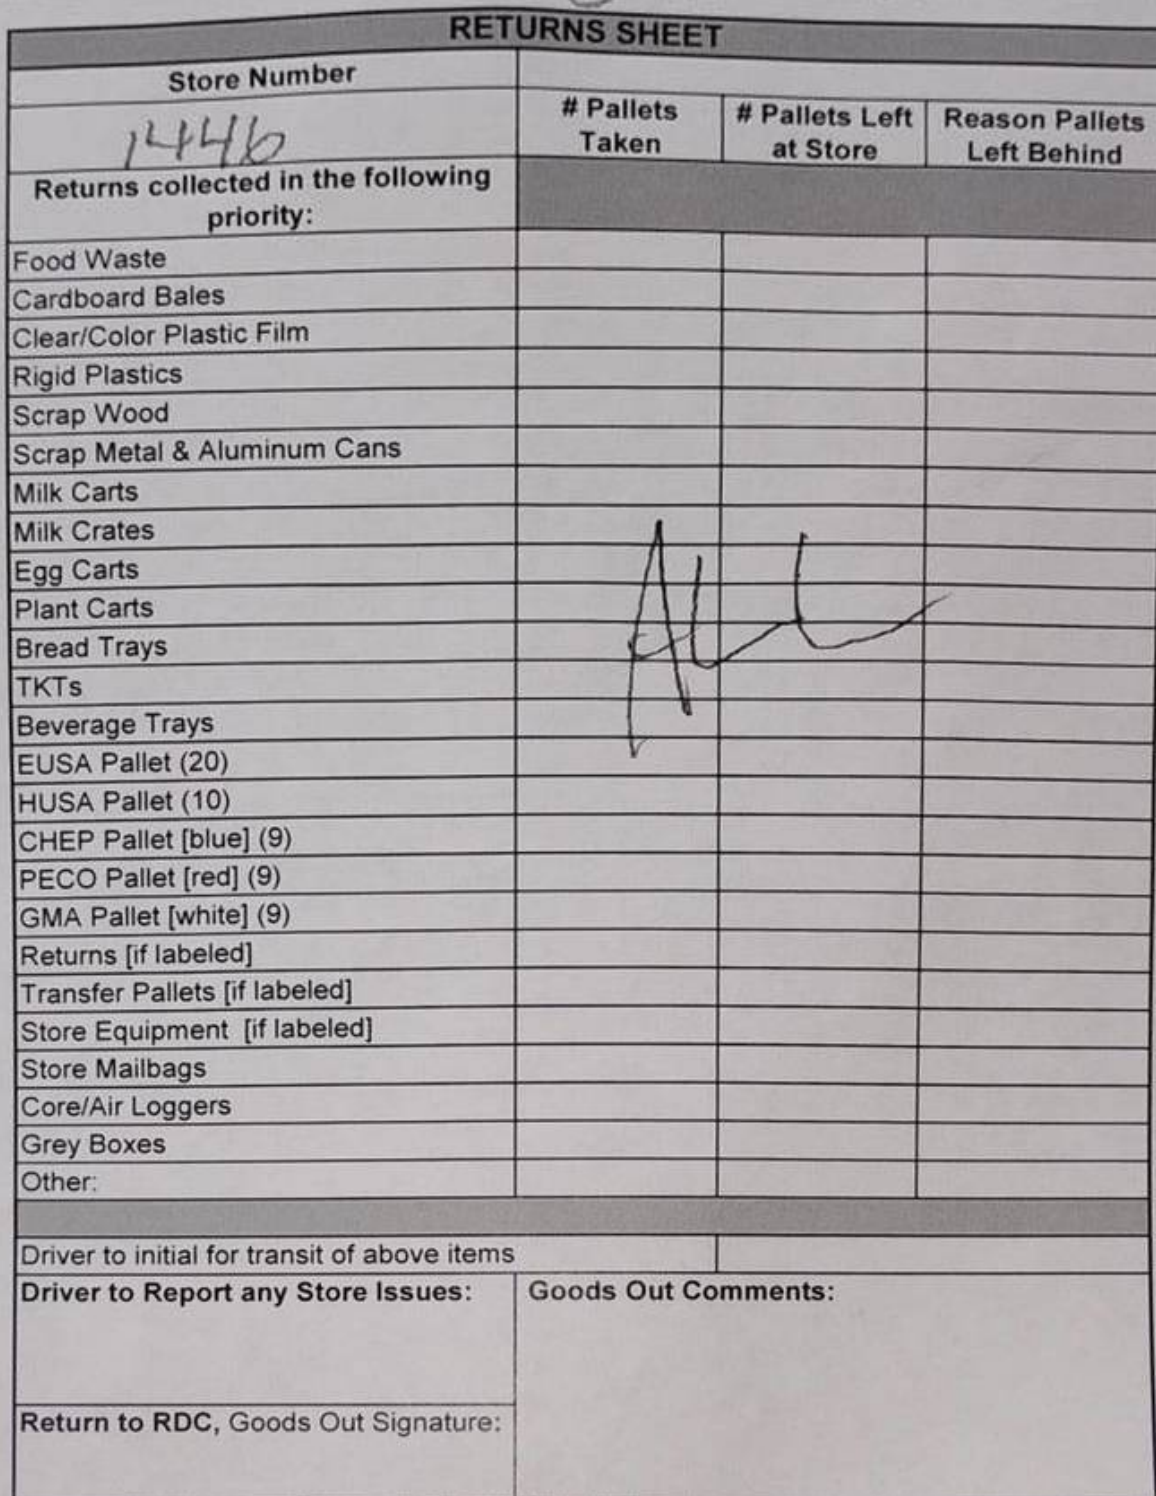 RETURNS SHEET
Store Number
1446
# Pallets Taken
# Pallets Left at Store
Reason Pallets Left Behind
Returns collected in the following
priority:
Food Waste
Cardboard Bales
Clear/Color Plastic Film
Rigid Plastics
Scrap Wood
Scrap Metal & Aluminum Cans
Milk Carts
Milk Crates
Egg Carts
Plant Carts
Bread Trays
All
TKTs
Beverage Trays
EUSA Pallet (20)
HUSA Pallet (10)
CHEP Pallet [blue] (9)
PECO Pallet [red] (9)
GMA Pallet [white] (9)
Returns [if labeled]
Transfer Pallets [if labeled]
Store Equipment [if labeled]
Store Mailbags
Core/Air Loggers
Grey Boxes
Other:
Driver to initial for transit of above items
Driver to Report any Store Issues:
Goods Out Comments:
Return to RDC, Goods Out Signature: